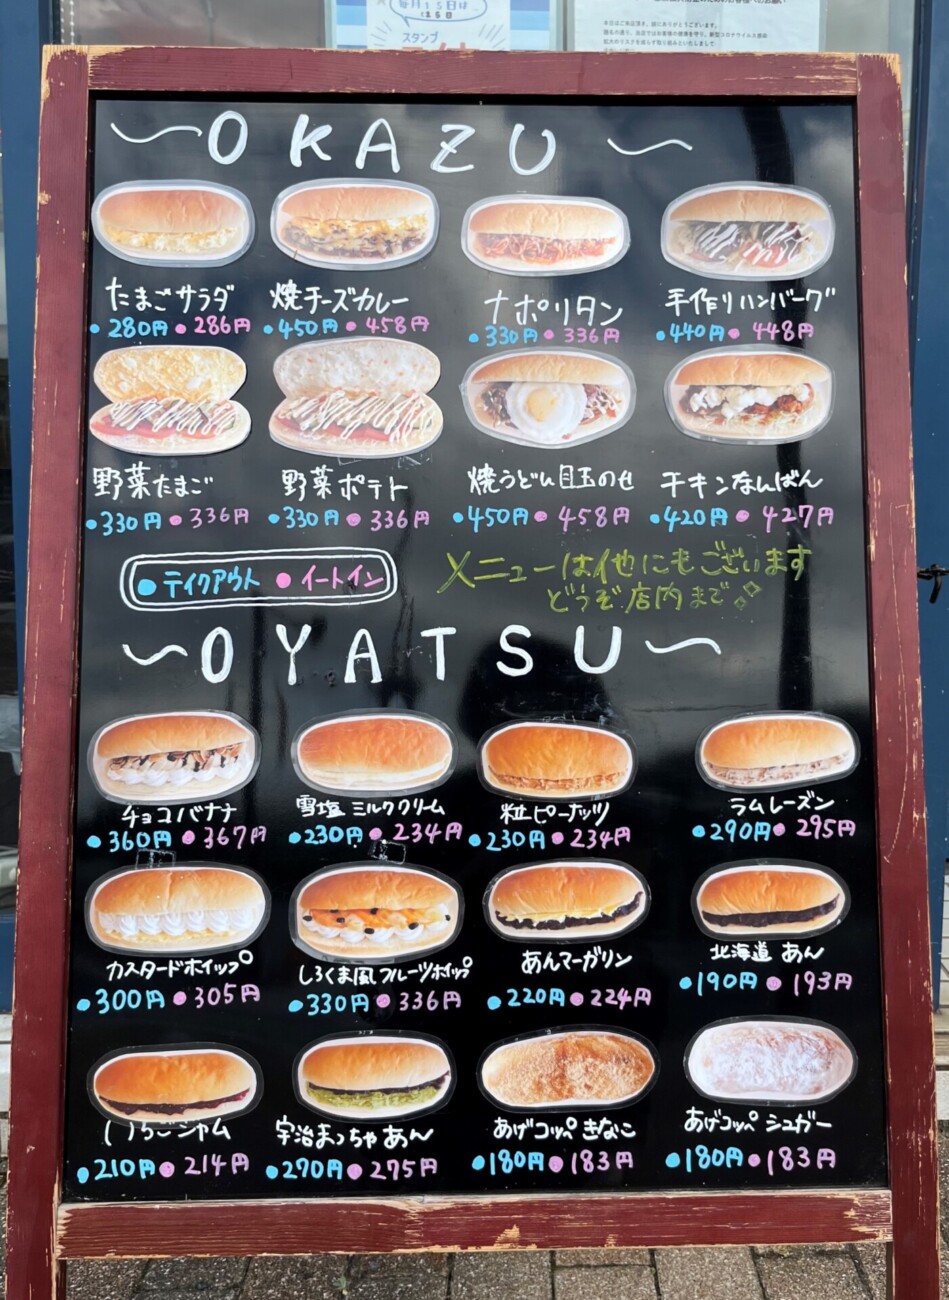 毎月15日は
はる日
スタンプ
本日はご来店頂き、誠にありがとうございます。
〜OKAZU〜
たまごサラダ 焼チーズカレー ナポリタン 手作りハンバーグ
●280円 ●286円 ●450円 ●458円 ●330円 ●336円 ●440円 ●448円
野菜たまご 野菜ポテト 焼うどん目玉のせ チキンなんばん
●330円 ●336円 ●330円 ●336円 ●450円 ●458円 ●420円 ●427円
●テイクアウト ●イートイン
メニューは他にもございます
どうぞ店内まで
〜OYATSU〜
チョコバナナ 雪塩ミルククリーム 粒ピーナッツ ラムレーズン
●360円 ●367円 ●230円 ●234円 ●230円 ●234円 ●290円 ●295円
カスタードホイップ しろくま風フルーツホイップ あんマーガリン 北海道あん
●300円 ●305円 ●330円 ●336円 ●220円 ●224円 ●190円 ●193円
いちごジャム 宇治まっちゃあん あげコッペきなこ あげコッペシュガー
●210円 ●214円 ●270円 ●275円 ●180円 ●183円 ●180円 ●183円